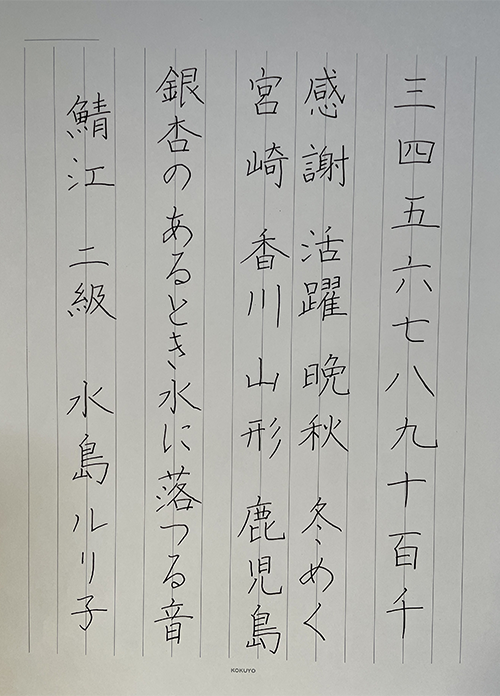 三四五六七八九十百千
感謝 活躍 晩秋 冬めく
宮崎 香川 山形 鹿児島
銀杏のあるとき水に落つる音
鯖江 二級 水島ルリ子
KOKUYO